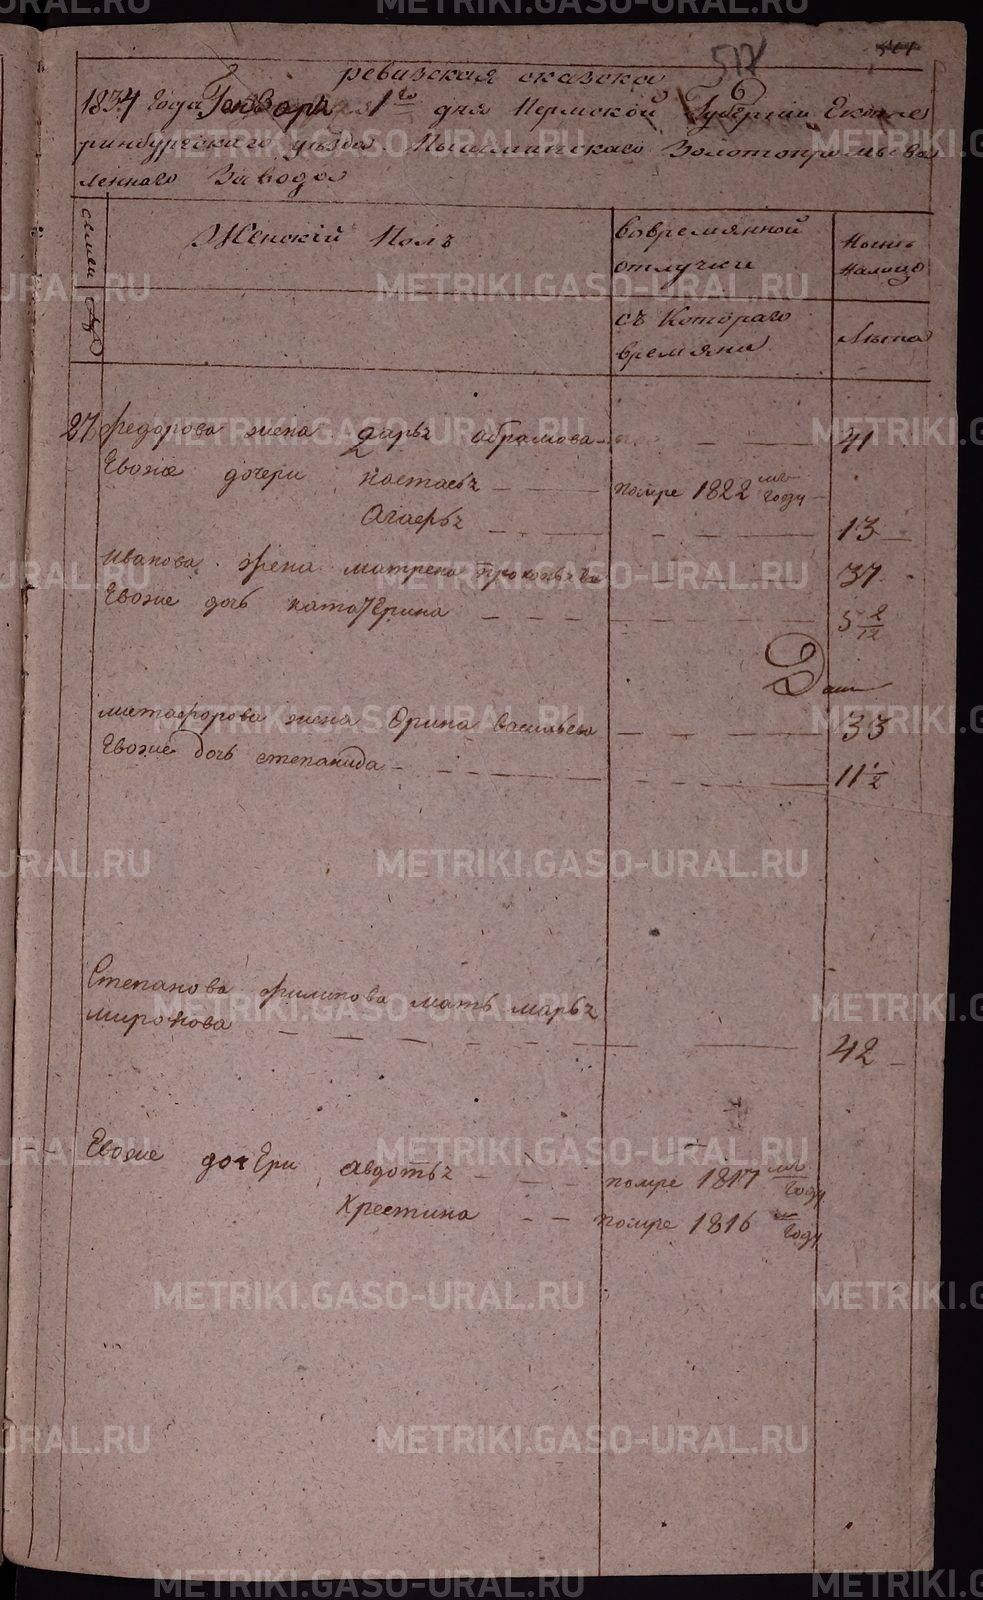 517
ревизская сказска
1834 года Генворя 1го дня Пермской Губернии Екате
ринбургскаго уѣзда Пышминскаго Золотопромысва
леннаго Завода
семьи
Женскій Полъ
вовремянной
отлучки
Нынѣ
Налицо
съ Котораго
времяни
Лѣта
27 федорова жена дарьѧ абрамова 41
Евоже дочери настасьѧ помре 1822мъ году
Агафьѧ 13
Иванова жена матрена 37
Евоже дочь катеерина 5 2/12
митрофорова жена Орина васильева 33
Евоже дочь степанида 11 1/2
Степанова филипова мать марьѧ
миронова 42
Евоже дочери авдотьѧ помре 1817мъ году
Хрестина помре 1816м году
METRIKI.GASO-URAL.RU